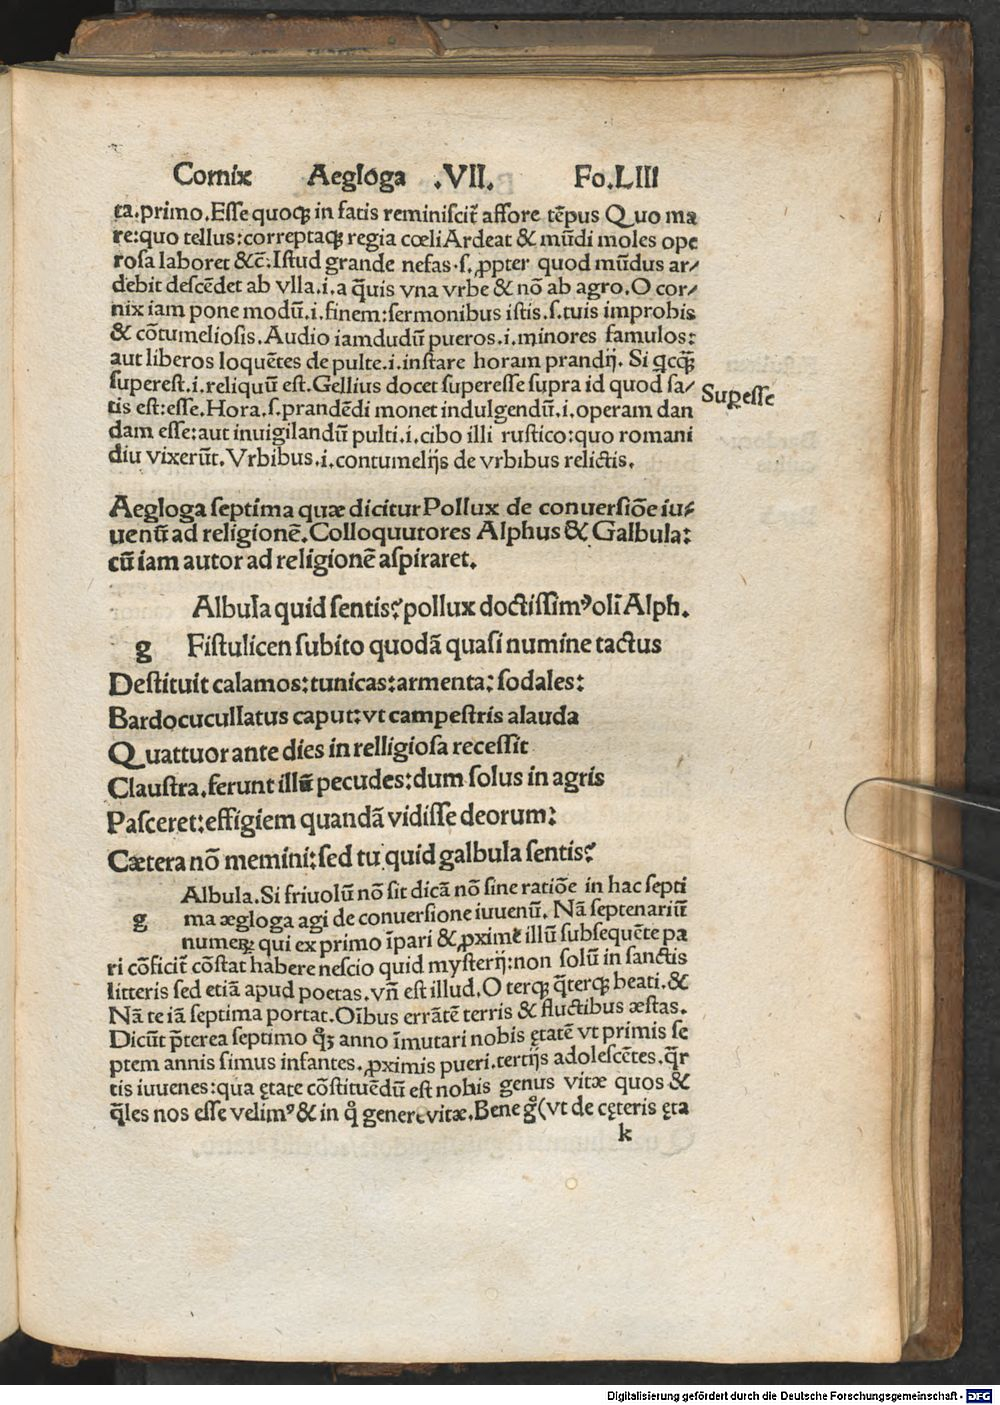 Cornix Aegloga .VII. Fo.LIII
ta.primo.Esse quoqꝫ in fatis reminiscit̃ affore tẽpus Quo ma
re:quo tellus:correptaqꝫ regia cœli Ardeat & mũdi moles ope
rosa laboret &c̃.Istud grande nefas.s.ꝓpter quod mũdus ar/
debit descẽdet ab vlla.i.a q̃uis vna vrbe & nõ ab agro.O cor/
nix iam pone modũ.i.finem:sermonibus istis.s.tuis improbis
& cõtumeliosis.Audio iamdudũ pueros.i.minores famulos:
aut liberos loquẽtes de pulte.i.instare horam prandij. Si qcq̃ꝫ
superest.i.reliquũ est.Gellius docet superesse supra id quod sa/
Suꝑesse
tis est:esse.Hora.s.prandẽdi monet indulgendũ.i.operam dan
dam esse:aut inuigilandũ pulti.i.cibo illi rustico:quo romani
diu vixerũt.Vrbibus.i.contumelijs de vrbibus relictis.
Aegloga septima quæ dicitur Pollux de conuersiõe iu/
uenũ ad religionẽ.Colloquutores Alphus & Galbula:
cũ iam autor ad religionẽ aspiraret.
Albula quid sentis?pollux doctissimꝰ oli Alph.
g Fistulicen subito quodã quasi numine tactus
Destituit calamos:tunicas:armenta:sodales:
Bardocucullatus caput:vt campestris alauda
Quattuor ante dies in relligiosa recessit
Claustra.ferunt illũ pecudes:dum solus in agris
Pasceret:effigiem quandã vidisse deorum:
Cætera nõ memini:sed tu quid galbula sentis?
Albula.Si friuolũ nõ sit dicã nõ sine ratiõe in hac septi
g ma ægloga agi de conuersione iuuenũ. Nã septenariũ
numeꝝ qui ex primo ĩpari & ꝓxime illũ subsequẽte pa
ri cõficit̃ cõstat habere nescio quid mysterij:non solũ in sanctis
litteris sed etiã apud poetas.vñ est illud.O terqꝫ q̃terqꝫ beati.&
Nã te iã septima portat.Oĩbus errãtẽ terris & fluctibus æstas.
Dicũt p̃terea septimo qͦꝫ anno ĩmutari nobis ętatẽ vt primis se
ptem annis simus infantes.ꝓximis pueri.tertijs adolescẽtes.q̃r
tis iuuenes:qua ętate cõstituẽdũ est nobis genus vitæ quos &
q̃les nos esse velimꝰ & in qͦ genere vitæ.Bene gͦ(vt de cęteris ęta
k
Digitalisierung gefördert durch die Deutsche Forschungsgemeinschaft - DFG